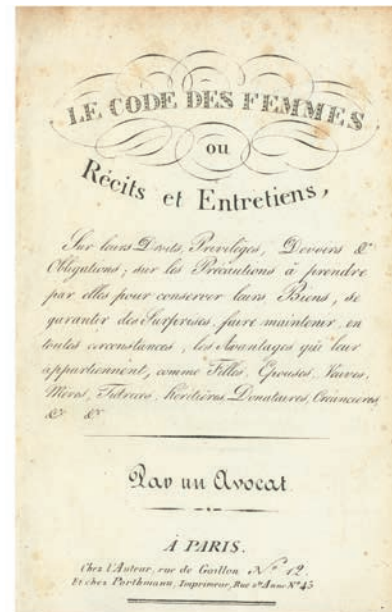 LE CODE DES FEMMES
ou
Récits et Entretiens,
Sur leurs Droits, Privilèges, Devoirs &
Obligations; sur les Précautions à prendre
par elles pour conserver leurs Biens, se
garantir des Surprises, faire maintenir, en
toutes circonstances, les Avantages qui leur
appartiennent, comme Filles, Epouses, Veuves,
Mères, Tutrices, héritières, Donataires, Créancières
&c &c
Par un Avocat.
À PARIS.
Chez l'Auteur, rue de Gaillon N.° 12.
Et chez Porthmann, Imprimeur, Rue S.te Anne N.° 43